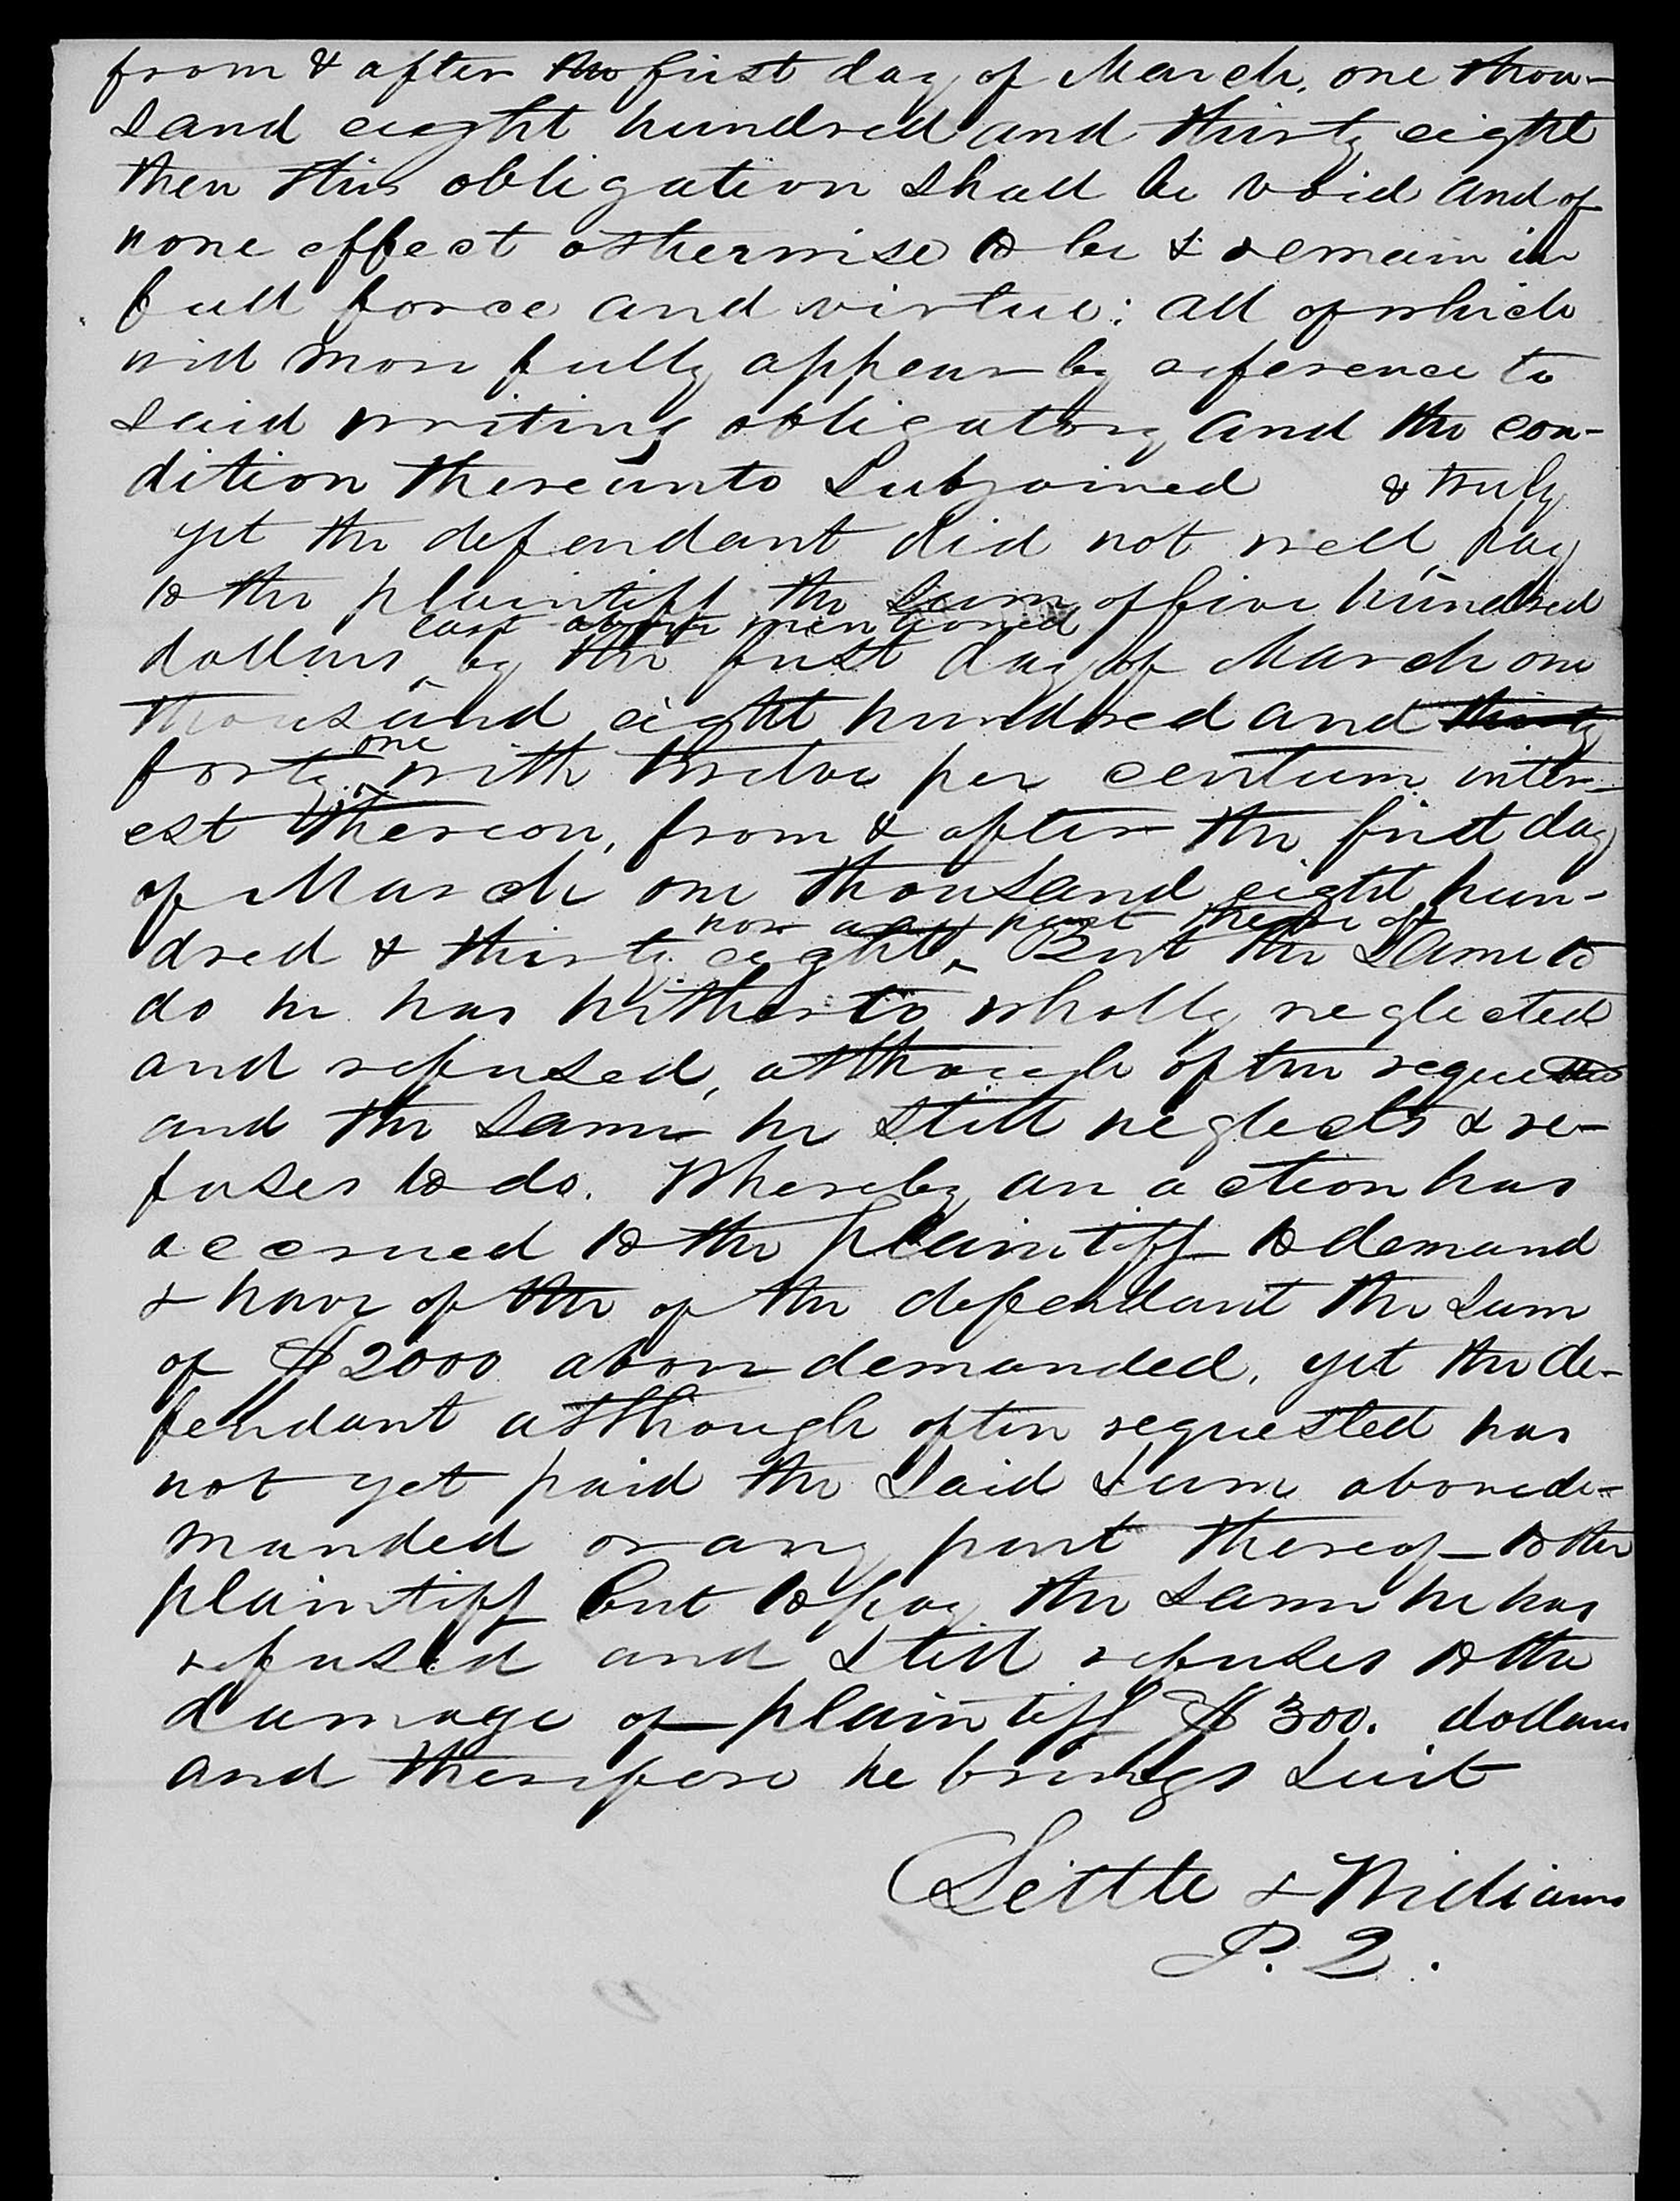 from & after the first day of March, one thou-
sand eight hundred and thirty eight
then this obligation shall be void and of
none effect otherwise to be & remain in
full force and virtue: all of which
will more fully appear by reference to
said writing obligatory and the con-
dition thereunto subjoined
& truly
yet the defendant did not well pay
to the plaintiff the sum of five hundred
last above mentioned
dollars by the first day of March one
thousand eight hundred and thirty
one
forty with twelve per centum inter-
est thereon, from & after the first day
of March one thousand eight hun-
nor any part thereof
dred & thirty eight. But the same to
do he has hitherto wholly neglected
and refused, although often requested
and the same he still neglects & re-
fuses to do. Whereby an action has
accrued to the plaintiff to demand
& have of the of the defendant the sum
of $2000 above demanded, yet the de-
fendant although often requested has
not yet paid the said sum above de-
manded or any part thereof to the
plaintiff but to pay the same he has
refused and still refuses to the
damage of plaintiff $300. dollars
and therefore he brings suit
Little & Williams
P. Q.